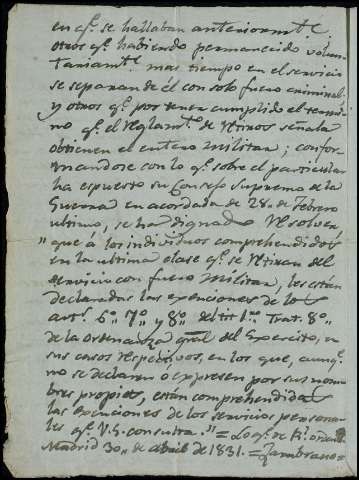 en q.e se hallaban anteriorm.te
otros q.e habiendo permanecido volun-
tariam.te mas tiempo en el servicio
se separan de él con solo fuero criminal
y otros q.e por tener cumplido el térmi-
no q.e el Reglam.to de Retiros señala
obtienen el entero Militar; confor-
mandose con lo q.e sobre el particular
ha espuesto su Consejo Supremo de la
Guerra en acordada de 28 de Febrero
ultimo, se ha dignado Resolver
"que á los individuos comprehendidos
en la ultima clase q.e se Retiran del
servicio con fuero Militar, les estan
declaradas las exenciones de los
art.s 6.o 7.o y 8.o del tit. 1.o Trat. 8.o
de la ordenanza gral del Exercito, en
sus casos respectivos, en los que, aunq.e
no se declaren ó expresen por sus nom-
bres propios, están comprehendidas
las exenciones de los servicios persona-
les q.e V.S. consulta." = Lo q.e de R.l orden
Madrid 30 de abril de 1831. = Zambrano =